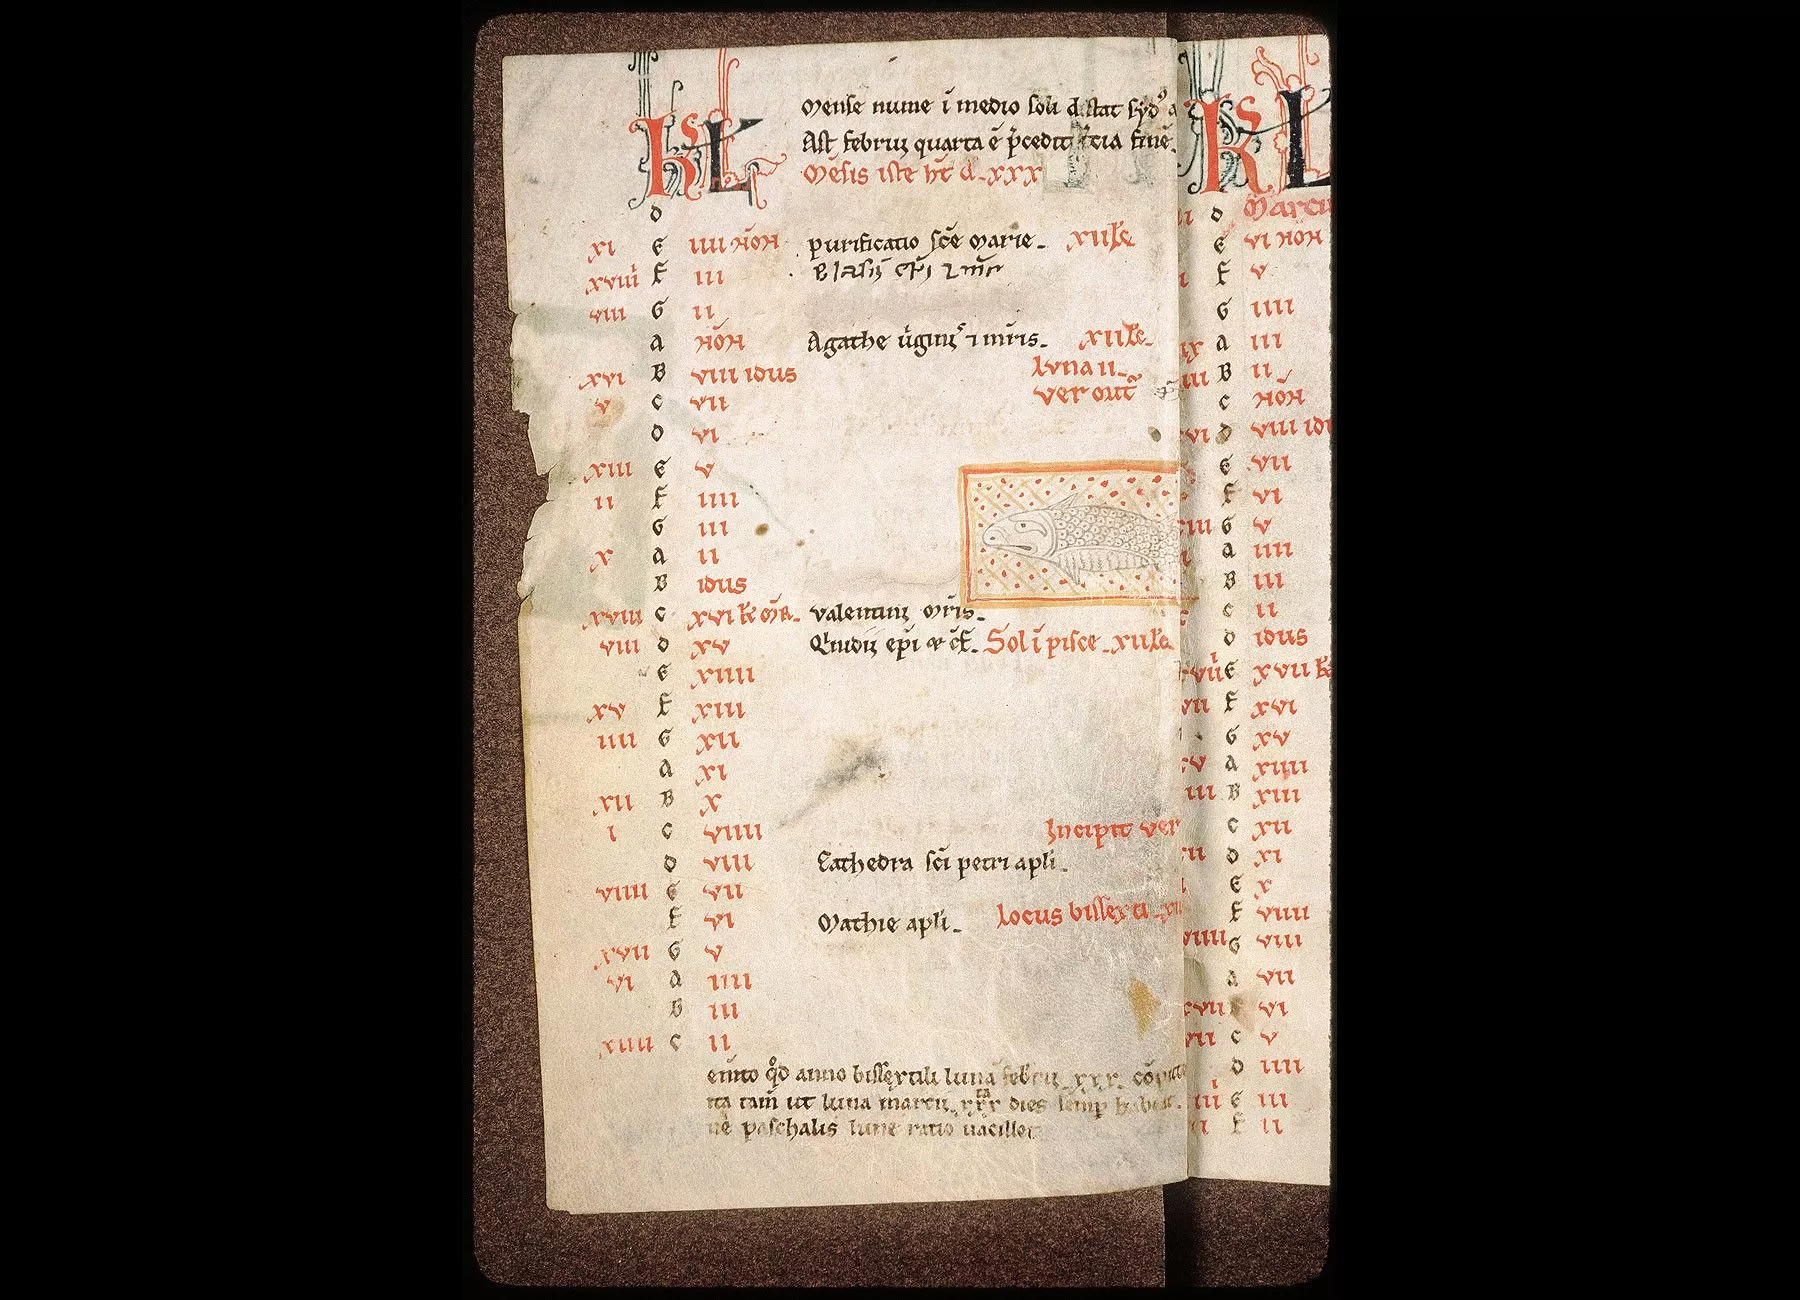 KL
Mense nume ĩ medio soli distat syd⁹ a
Ast februꝫ quarta ẽ p̄cedit t̄cia finẽ
Mẽsis iste ht̄ d. xxx
D
xi E iiii NON purificatio sc̄e Marie. xii ƚc
xviiii F iii Blasii ep̄i ⁊ mr̄
viii G ii
A NON Agathe v̄ginis ⁊ mr̄is. xii ƚc.
xvi B viii idus luna ii.
v C vii ver orit̃
D vi
xiii E v
ii F iiii
G iii
x A ii
B idus
xviii C xvi kƚ mr̄. valentini mr̄is.
viii D xv ep̄i et cf̄. Sol ĩ pisce. xii ƚc.
E xiiii
xv F xiii
iiii G xii
A xi
xii B x
i C viiii Incipit ver
D viii Cathedra sc̄i petri apƚi.
viiii E vii
F vi Mathie apƚi. locus bissexti
xvii G v
vi A iiii
B iii
xiiii C ii
qđ anno bissextili luna februꝫ. xxx.
ita tam̄ ut luna marcii. xxx dies semp̄
nẽ paschalis lune ratio vacillet
KL
D Marcii
E vi NON
F v
G iiii
A iii
B ii
C NON
D viii idu
E vii
F vi
G v
A iiii
B iii
C ii
D idus
E xvii k
F xvi
G xv
A xiiii
B xiii
C xii
D xi
E x
F viiii
G viii
A vii
vi
C v
D iiii
E iii
F ii